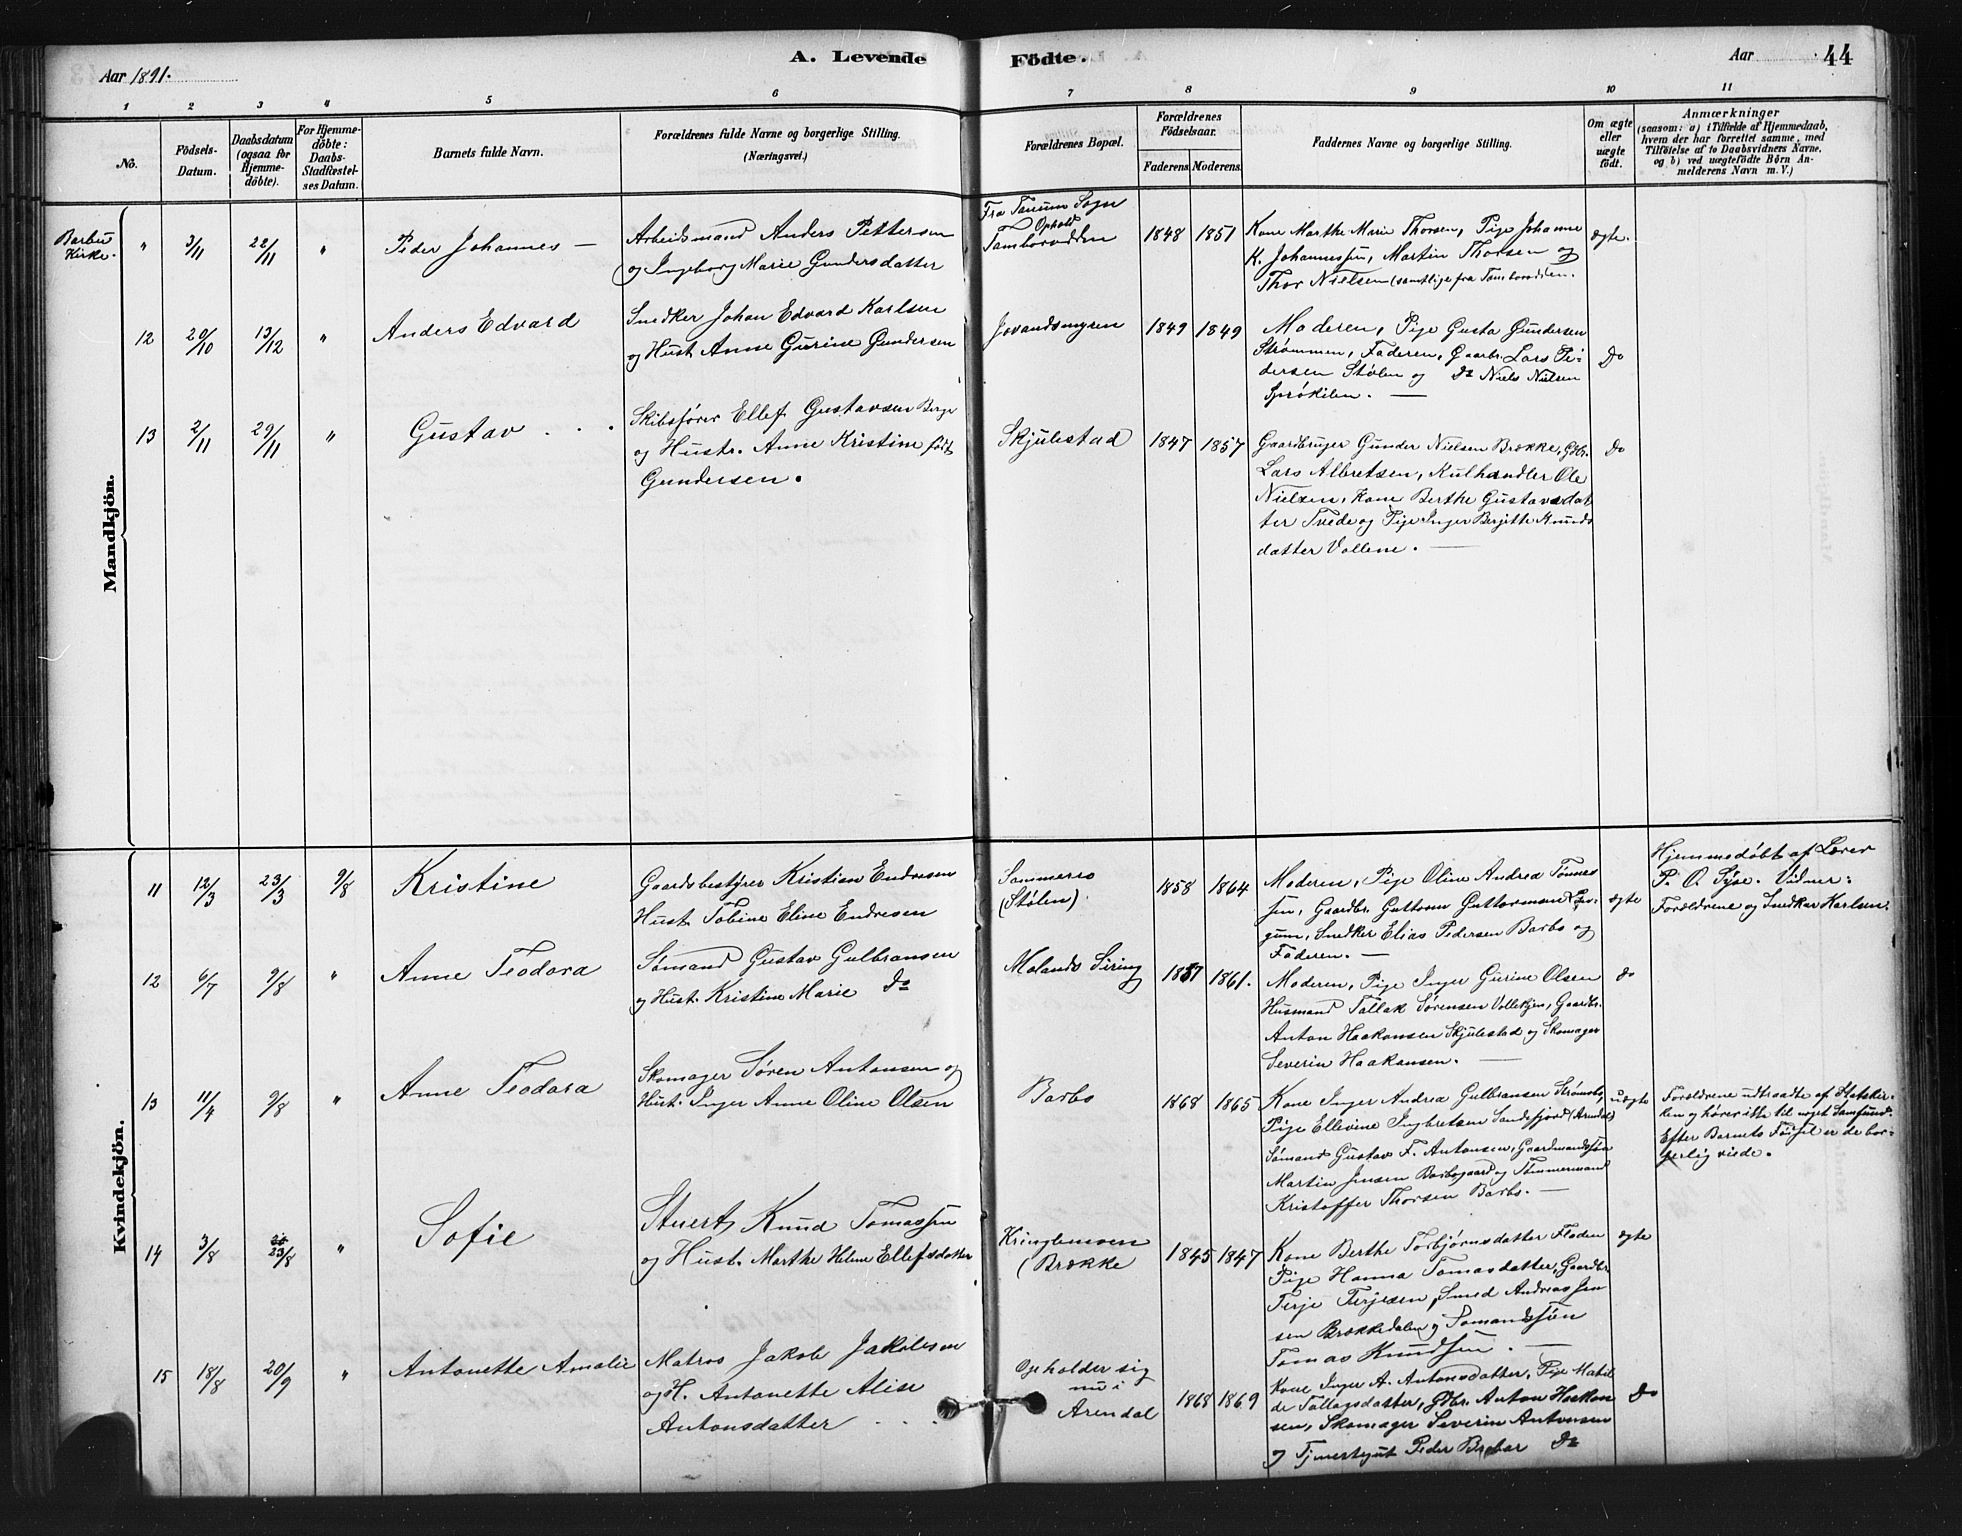 Aar 1891.
A. Levende
Födte.
Aar
44
1
2
3
4
5
6
7
8
9
10
11
No.
Födsels-
Datum.
Daabsdatum
(ogsaa for
Hjemme-
döbte).
For Hjemme-
döbte:
Daabs-
Stadfæstel-
ses Datum.
Barnets fulde Navn.
Forældrenes fulde Navne og borgerlige Stilling.
(Næringsvei.)
Forældrenes Bopæl.
Forældrenes
Födselsaar.
Faderens. Moderens.
Faddernes Navne og borgerlige Stilling.
Om ægte
eller
uægte
født.
Anmærkninger
(saasom: a) i Tilfælde af Hjemmedaab,
hvem der har forrettet samme, med
Tilföielse af to Daabsvidners Navne,
og b) ved uægtefödte Börn An-
melderens Navn m. V.)
Mandkjön.
Barbu
Kirke.
"
3/11
22/11
"
Peder Johannes —
Arbeidsmand Anders Pettersen
og Ingeborg Marie Gundersdatter
Fra Sogn
Ophold
Tamborodden
1848
1851
Kone Marthe Marie Thorsen, Pige Johanne
K. Johannessen, Martin Thorsen og
Thor Nielsen (samtlige fra Tamborodden.
ægte.
12
20/10
13/12
"
Anders Edvard
Snedker Johan Edvard Karlsen
og Hust. Anne Gurine Gundersen
Jovandsmyren
1849
1849
Moderen, Pige Gusta Gundersen
Strømmen, Faderen, Gaarbr. Lars Pe-
dersen Stølen og Do Niels Nielsen
Sprøkilen. —
Do
13
2/11
29/11
"
Gustav . .
Skibsfører Ellef Gustavsen Berge
og Hustr. Anne Kristine født
Gundersen.
Skjulestad
1847
1857
Gaardbruger Gunder Nielsen Brække, Gbr.
Lars Albretsen, Kulhandler Ole
Nielsen, Kone Berthe Gustavsdat
ter Tvede og Pige Inger Bergitte Knuds
datter Vollene. —
Do
Kvindekjön.
11
12/3
23/3
9/8
Kristine
Gaardsbestyrer Kristian Endresen
Hust. Tobine Eline Endresen
Sommeres
(Stølen)
1858
1864
Moderen, Pige Oline Andrea Tønnes
sen, Gaardbr. Guttorm Guttormsen
gum, Snedker Elias Pedersen Barbo og
Faderen. —
ægte
Hjemmedøbt af Lærer
P. O. Vidner:
Forældrene og Snedker Karlsen.
12
6/7
9/8
"
Anne Teodora
Sømand Gustav Gulbransen
og Hust. Kristine Marie Do
Molands Sireng
1857
1861.
Moderen, Pige Inger Gurine Olsen
Husmand Tallak Sørensen Vollekjen, Gaardbr.
Anton Haakonsen Skjulestad og Skomager
Severin Haakonsen. —
do
13
11/4
9/8
"
Anne Teodora
Skomager Søren Antonsen og
Hust. Inger Anne Oline Olsen
Barbo
1868
1865
Kone Inger Andrea Gulbransen Strømsbo,
Pige Ellevine Ingbretsen Sandefjord (Arendal)
Sømand Gustav F. Antonsen, Gaardmandssøn
Martin Jensen Barbogaard og Tømmermand
Kristoffer Thorsen Barbo. —
uægte
Forældrene udtraadte af Statskir-
ken og hører itte til noget Samfund.
Efter Barnets Fødsel er de bor-
gerlig viede.
14
3/8
23/8
"
Sofie
Stuert Knud Tomassen
og Hust. Marthe Helene Ellefsdatter
Kringlemoen
(Brække
1845
1847
Kone Berthe Torbjørnsdatter Floden
Pige Hanna Tomasdatter, Gaardbr.
Terje Terjesen, Smed Andreassen
sen Brækkedalen og Sømandssøn
Tomas Knudsen. —
ægte
15
18/8
20/9
"
Antonette Amalie
Matros Jakob Jakobsen
og H. Antonette Alise
Antonsdatter . .
Opholder sig
nu i
Arendal
1868
1869
Kone Inger A. Antonsdatter, Pige Matil
de Tallagsdatter, Gbr. Anton Haakon
sen, Skomager Severin Antonsen
og Tjenestegut Peder Do
Do